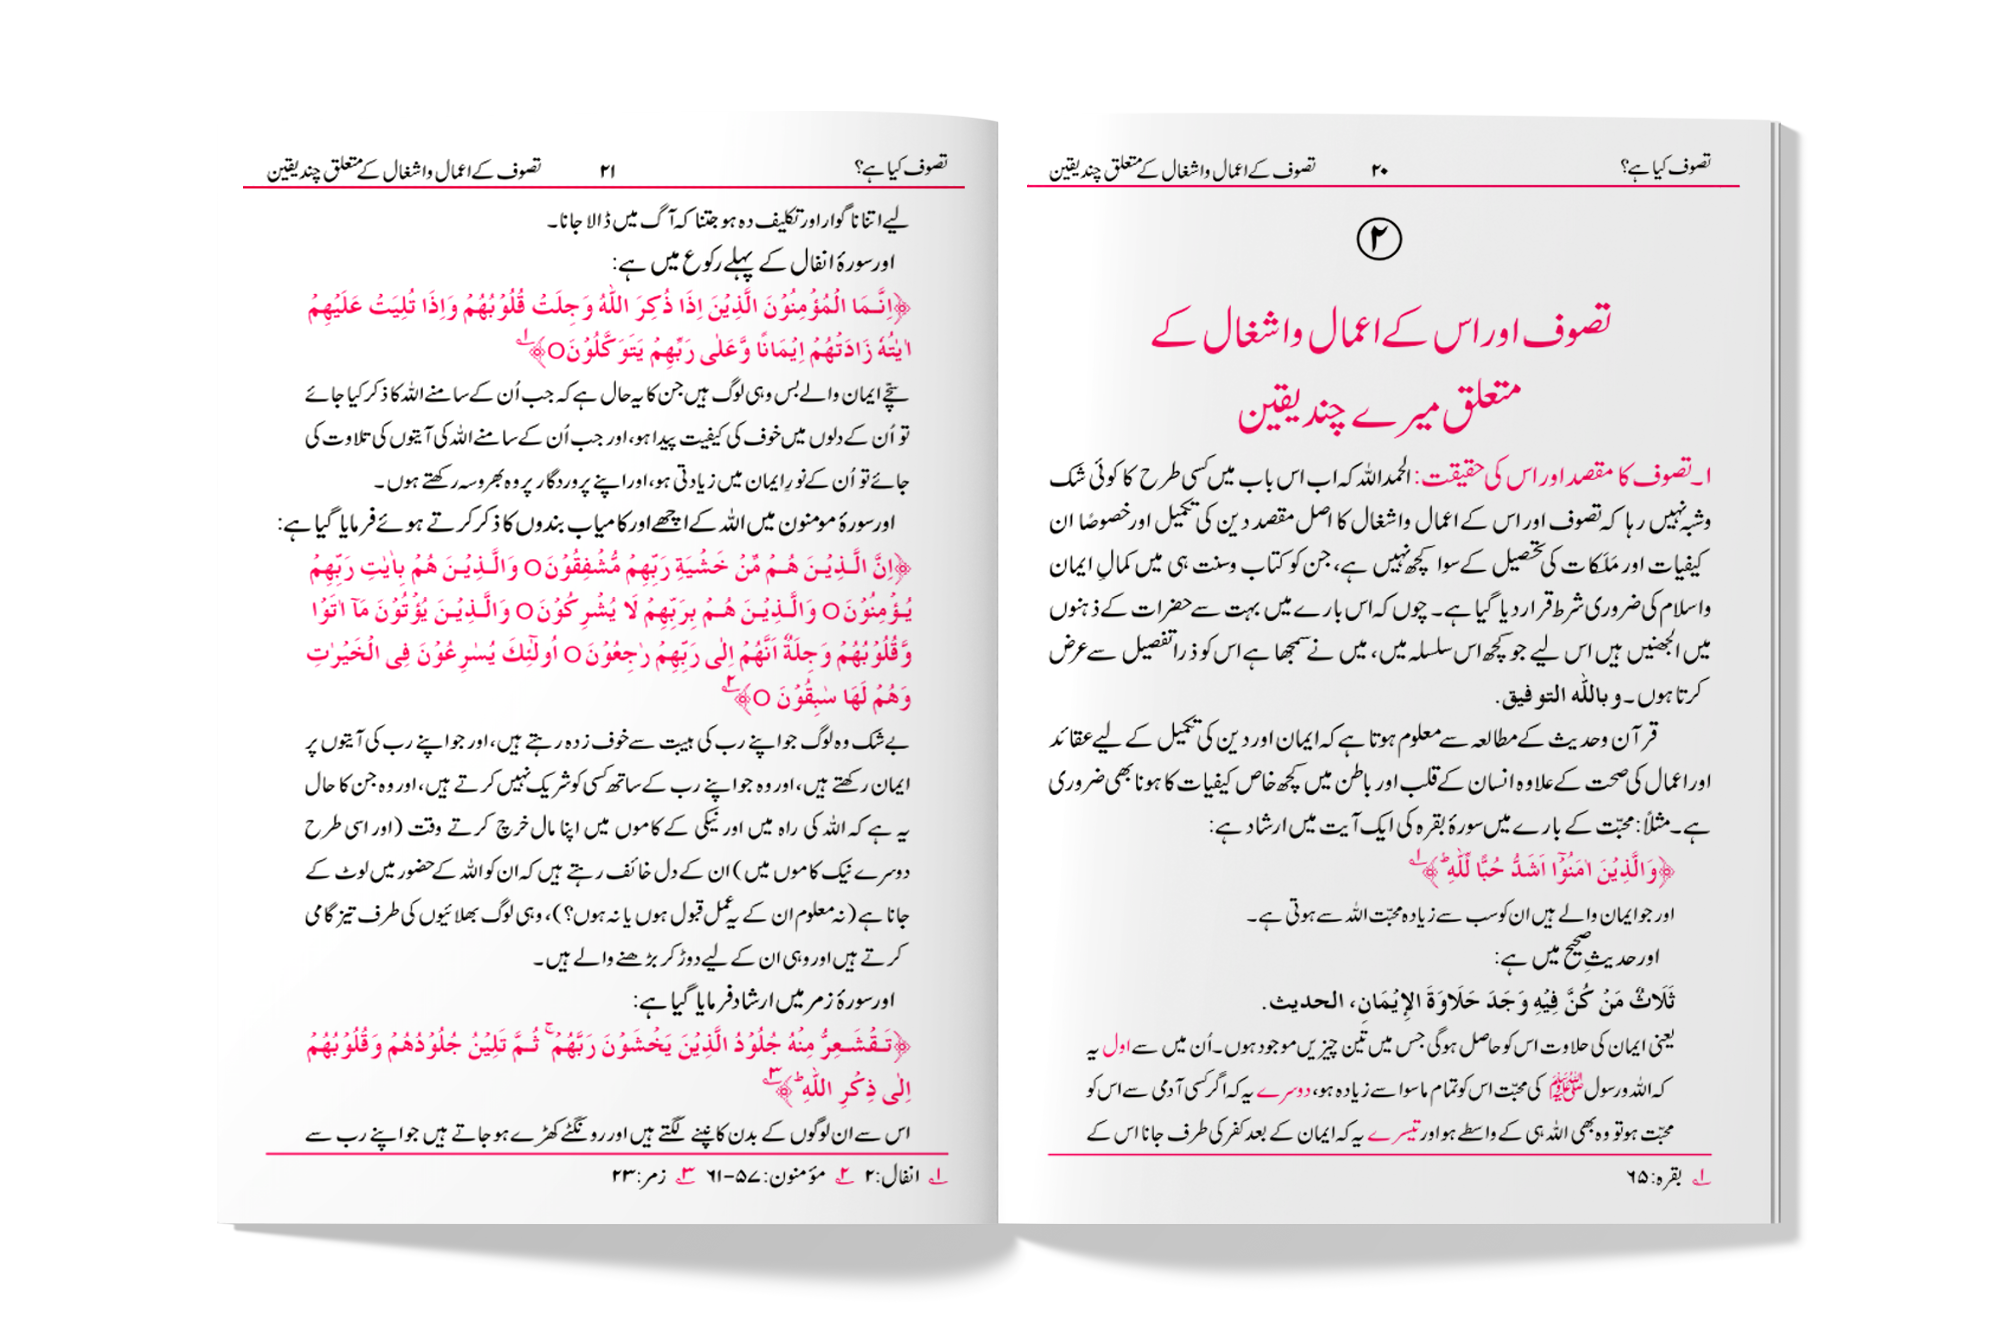 تصوف کیا ہے؟ ۲۰ تصوف کے اعمال واشغال کے متعلق چند یقین
۲
تصوف اور اس کے اعمال واشغال کے
متعلق میرے چند یقین
۱۔ تصوف کا مقصد اور اس کی حقیقت: الحمد اللہ کہ اب اس باب میں کسی طرح کا کوئی شک
وشبہ نہیں رہا کہ تصوف اور اس کے اعمال واشغال کا اصل مقصد دین کی تکمیل اور خصوصًا ان
کیفیات اور مَلَکات کی تحصیل کے سوا کچھ نہیں ہے، جن کو کتاب وسنت ہی میں کمالِ ایمان
واسلام کی ضروری شرط قرار دیا گیا ہے۔ چوں کہ اس بارے میں بہت سے حضرات کے ذہنوں
میں الجھنیں ہیں اس لیے جو کچھ اس سلسلہ میں، میں نے سمجھا ہے اس کو ذرا تفصیل سے عرض
کرتا ہوں۔ وباللّٰه التوفیق.
قرآن وحدیث کے مطالعہ سے معلوم ہوتا ہے کہ ایمان اور دین کی تکمیل کے لیے عقائد
اور اعمال کی صحت کے علاوہ انسان کے قلب اور باطن میں کچھ خاص کیفیات کا ہونا بھی ضروری
ہے۔ مثلاً: محبّت کے بارے میں سورۂ بقرہ کی ایک آیت میں ارشاد ہے:
﴿وَالَّذِيۡنَ اٰمَنُوۡٓا اَشَدُّ حُبًّا لِّلّٰهِ ؕ﴾ ؎۱
اور جو ایمان والے ہیں ان کو سب سے زیادہ محبّت اللہ سے ہوتی ہے۔
اور حدیثِ صحیح میں ہے:
ثَلَاثٌ مَنۡ كُنَّ فِيۡهِ وَجَدَ حَلَاوَةَ الۡإِيۡمَانِ، الحديث.
یعنی ایمان کی حلاوت اس کو حاصل ہوگی جس میں تین چیزیں موجود ہوں۔ اُن میں سے اول یہ
کہ اللہ ورسول ﷺ کی محبّت اس کو تمام ماسوا سے زیادہ ہو، دوسرے یہ کہ اگر کسی آدمی سے اس کو
محبّت ہو تو وہ بھی اللہ ہی کے واسطے ہو اور تیسرے یہ کہ ایمان کے بعد کفر کی طرف جانا اس کے
؎۱ بقرہ: ۶۵
تصوف کیا ہے؟ ۲۱ تصوف کے اعمال واشغال کے متعلق چند یقین
لیے اتنا ناگوار اور تکلیف دہ ہو جتنا کہ آگ میں ڈالا جانا۔
اور سورۂ انفال کے پہلے رکوع میں ہے:
﴿اِنَّمَا الۡمُؤۡمِنُوۡنَ الَّذِيۡنَ اِذَا ذُكِرَ اللّٰهُ وَجِلَتۡ قُلُوۡبُهُمۡ وَاِذَا تُلِيَتۡ عَلَيۡهِمۡ
اٰيٰتُهٗ زَادَتۡهُمۡ اِيۡمَانًا وَّعَلٰى رَبِّهِمۡ يَتَوَكَّلُوۡنَ○﴾ ؎۱
سچّے ایمان والے بس وہی لوگ ہیں جن کا یہ حال ہے کہ جب اُن کے سامنے اللہ کا ذکر کیا جائے
تو اُن کے دلوں میں خوف کی کیفیت پیدا ہو، اور جب اُن کے سامنے اللہ کی آیتوں کی تلاوت کی
جائے تو اُن کے نورِ ایمان میں زیادتی ہو، اور اپنے پروردگار پر وہ بھروسہ رکھتے ہوں۔
اور سورۂ مومنون میں اللہ کے اچھے اور کامیاب بندوں کا ذکر کرتے ہوئے فرمایا گیا ہے:
﴿اِنَّ الَّذِيۡنَ هُمۡ مِّنۡ خَشۡيَةِ رَبِّهِمۡ مُّشۡفِقُوۡنَ○ وَالَّذِيۡنَ هُمۡ بِاٰيٰتِ رَبِّهِمۡ
يُؤۡمِنُوۡنَ○ وَالَّذِيۡنَ هُمۡ بِرَبِّهِمۡ لَا يُشۡرِكُوۡنَ○ وَالَّذِيۡنَ يُؤۡتُوۡنَ مَآ اٰتَوۡا
وَّقُلُوۡبُهُمۡ وَجِلَةٌ اَنَّهُمۡ اِلٰى رَبِّهِمۡ رٰجِعُوۡنَ○ اُولٰٓئِكَ يُسٰرِعُوۡنَ فِى الۡخَيۡرٰتِ
وَهُمۡ لَهَا سٰبِقُوۡنَ ○﴾ ؎۲
بے شک وہ لوگ جو اپنے رب کی ہیبت سے خوف زدہ رہتے ہیں، اور جو اپنے رب کی آیتوں پر
ایمان رکھتے ہیں، اور وہ جو اپنے رب کے ساتھ کسی کو شریک نہیں کرتے ہیں، اور وہ جن کا حال
یہ ہے کہ اللہ کی راہ میں اور نیکی کے کاموں میں اپنا مال خرچ کرتے وقت (اور اسی طرح
دوسرے نیک کاموں میں) ان کے دل خائف رہتے ہیں کہ ان کو اللہ کے حضور میں لوٹ کے
جانا ہے (نہ معلوم ان کے یہ عمل قبول ہوں یا نہ ہوں؟)، وہی لوگ بھلائیوں کی طرف تیز گامی
کرتے ہیں اور وہی ان کے لیے دوڑ کر بڑھنے والے ہیں۔
اور سورۂ زمر میں ارشاد فرمایا گیا ہے:
﴿تَقۡشَعِرُّ مِنۡهُ جُلُوۡدُ الَّذِيۡنَ يَخۡشَوۡنَ رَبَّهُمۡ ۚ ثُمَّ تَلِيۡنُ جُلُوۡدُهُمۡ وَقُلُوۡبُهُمۡ
اِلٰى ذِكۡرِ اللّٰهِ ؕ﴾ ؎۳
اس سے ان لوگوں کے بدن کانپنے لگتے ہیں اور رونگٹے کھڑے ہو جاتے ہیں جو اپنے رب سے
؎۱ انفال: ۲ ؎۲ مؤمنون: ۵۷-۶۱ ؎۳ زمر: ۲۳